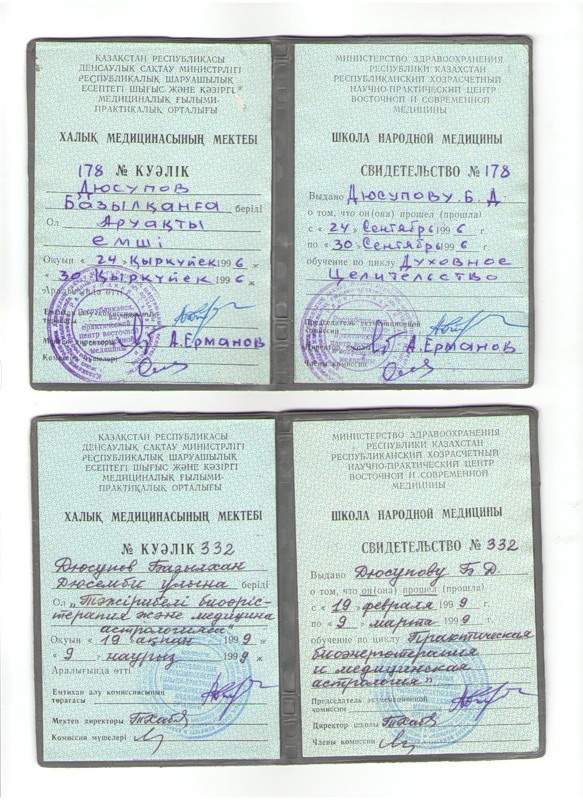 ҚАЗАҚСТАН РЕСПУБЛИКАСЫ
ДЕНСАУЛЫҚ САҚТАУ МИНИСТРЛІГІ
РЕСПУБЛИКАЛЫҚ ШАРУАШЫЛЫҚ
ЕСЕПТЕГІ ШЫҒЫС ЖӘНЕ КӘЗІРГІ
МЕДИЦИНАЛЫҚ ҒЫЛЫМИ-
ПРАКТИКАЛЫҚ ОРТАЛЫҒЫ
ХАЛЫҚ МЕДИЦИНАСЫНЫҢ МЕКТЕБІ
178 № КУӘЛІК
Дюсупов
Базылқанға берілді
Ол Аруақты
емші
Оқуын « 24 » Қыркүйек 1996 ж
« 30 » Қыркүйек 1996 ж
Аралығында өтті
Емтихан
төрағасы
Мектеп директоры А. Ерманов
Комиссия мүшелері
МИНИСТЕРСТВО ЗДРАВООХРАНЕНИЯ
РЕСПУБЛИКИ КАЗАХСТАН
РЕСПУБЛИКАНСКИЙ ХОЗРАСЧЕТНЫЙ
НАУЧНО-ПРАКТИЧЕСКИЙ ЦЕНТР
ВОСТОЧНОЙ И СОВРЕМЕННОЙ
МЕДИЦИНЫ
ШКОЛА НАРОДНОЙ МЕДИЦИНЫ
СВИДЕТЕЛЬСТВО № 178
Выдано Дюсупову Б. Д.
о том, что он(она) прошел (прошла)
с « 24 » Сентябрь 1996 г.
по « 30 » Сентябрь 1996 г.
обучение по циклу Духовное
Целительство
Председатель экзаменационной
комиссии
Директор школы А. Ерманов
Члены комиссии
ҚАЗАҚСТАН РЕСПУБЛИКАСЫ
ДЕНСАУЛЫҚ САҚТАУ МИНИСТРЛІГІ
РЕСПУБЛИКАЛЫҚ ШАРУАШЫЛЫҚ
ЕСЕПТЕГІ ШЫҒЫС ЖӘНЕ КӘЗІРГІ
МЕДИЦИНАЛЫҚ ҒЫЛЫМИ-
ПРАКТИКАЛЫҚ ОРТАЛЫҒЫ
ХАЛЫҚ МЕДИЦИНАСЫНЫҢ МЕКТЕБІ
№ КУӘЛІК 332
Дюсупов Базылхан
Дюсемби улына берілді
Ол „Тәжірибелі биоөріс-
терапия және медицина
астрологиясы“
Оқуын « 19 » ақпан 1999 ж
« 9 » наурыз 1999 ж
Аралығында өтті
Емтихан алу комиссиясының
төрағасы
Мектеп директоры
Комиссия мүшелері
МИНИСТЕРСТВО ЗДРАВООХРАНЕНИЯ
РЕСПУБЛИКИ КАЗАХСТАН
РЕСПУБЛИКАНСКИЙ ХОЗРАСЧЕТНЫЙ
НАУЧНО-ПРАКТИЧЕСКИЙ ЦЕНТР
ВОСТОЧНОЙ И СОВРЕМЕННОЙ
МЕДИЦИНЫ
ШКОЛА НАРОДНОЙ МЕДИЦИНЫ
СВИДЕТЕЛЬСТВО № 332
Выдано Дюсупову Б. Д.
о том, что он(она) прошел (прошла)
с « 19 » февраля 1999 г.
по « 9 » марта 1999 г.
обучение по циклу Практическая
биоэнерготерапия
и медицинская
астрология“
Председатель экзаменационной
комиссии
Директор школы
Члены комиссии